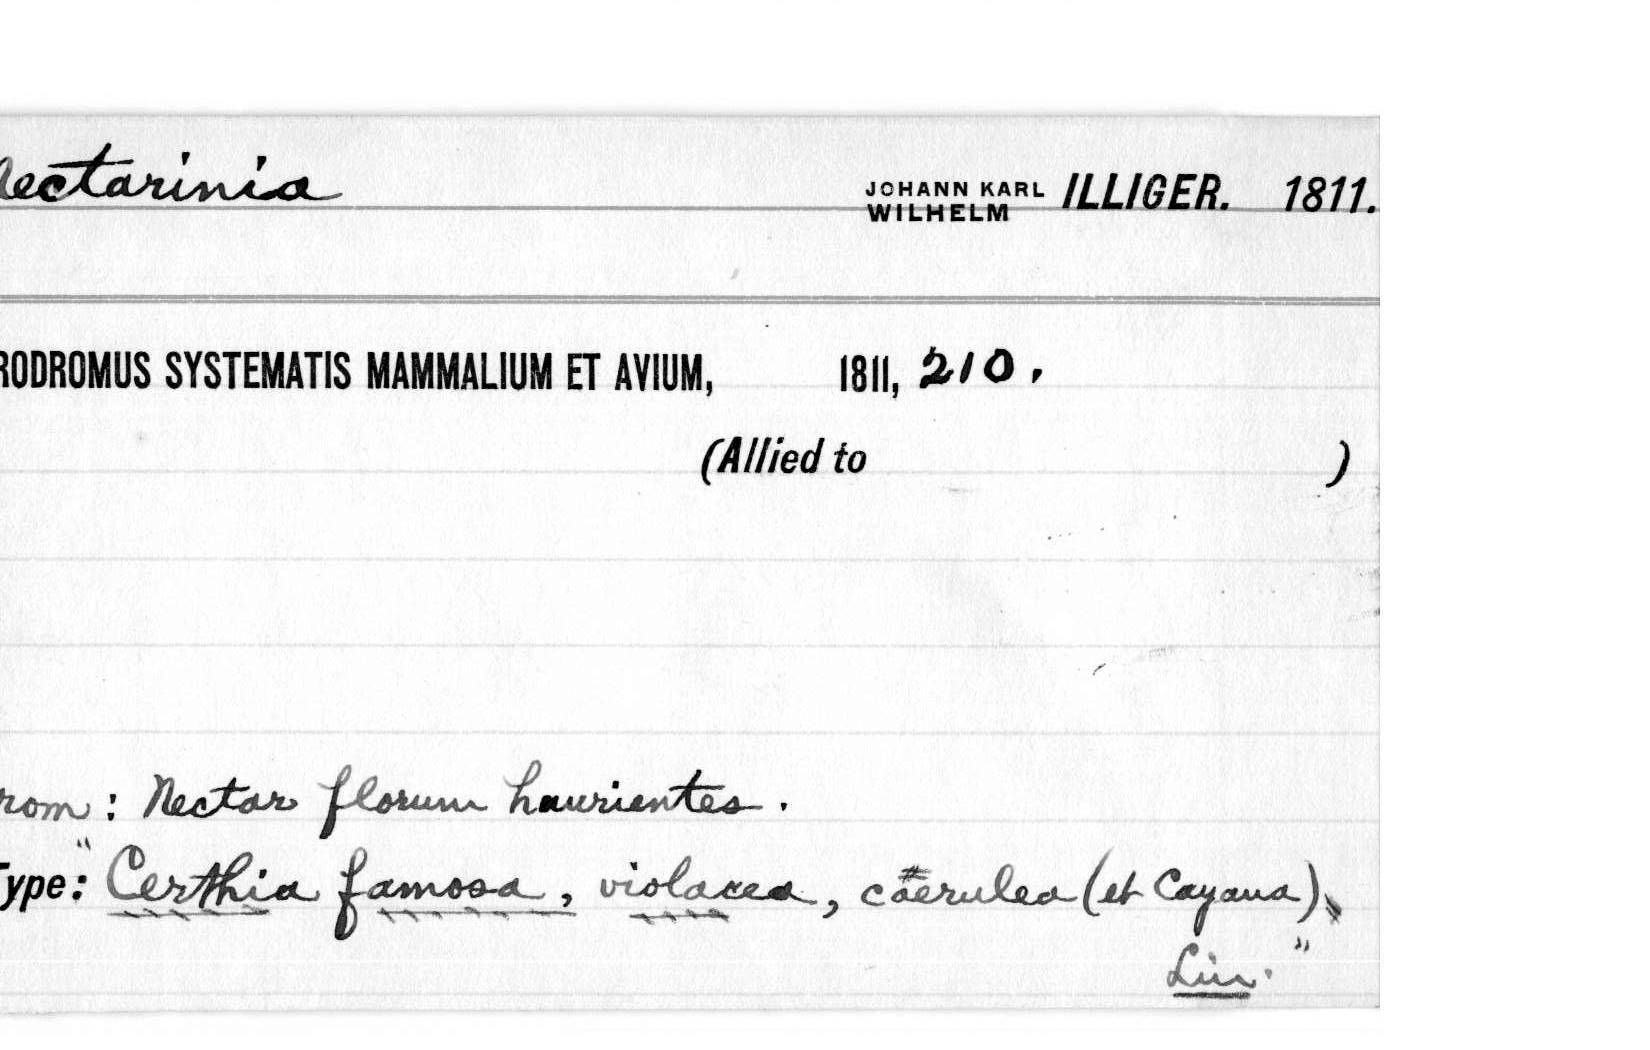 ectarinia JOHANN KARL WILHELM ILLIGER. 1811.
RODROMUS SYSTEMATIS MAMMALIUM ET AVIUM, 1811, 210.
(Allied to )
rom: Nectar florum haurientes.
Type: "Certhia famosa, violacea, caerulea (et Cayana),
Lin."